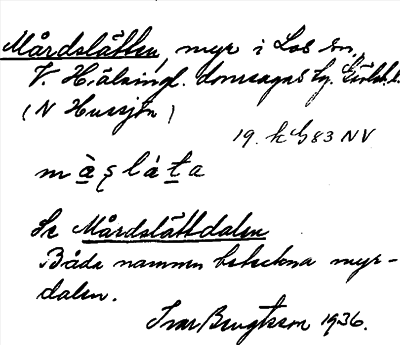 Mårdslåtten, myr i Los sn.,
V. Hälsingl. domsagas tg. Gävleb. l.
(N Hussjön)
19. k G 83 NV
màʂláta
Se Mårdslåttdalen
Båda namnen beteckna myr-
dalen.
Ivar Bengtsson 1936.